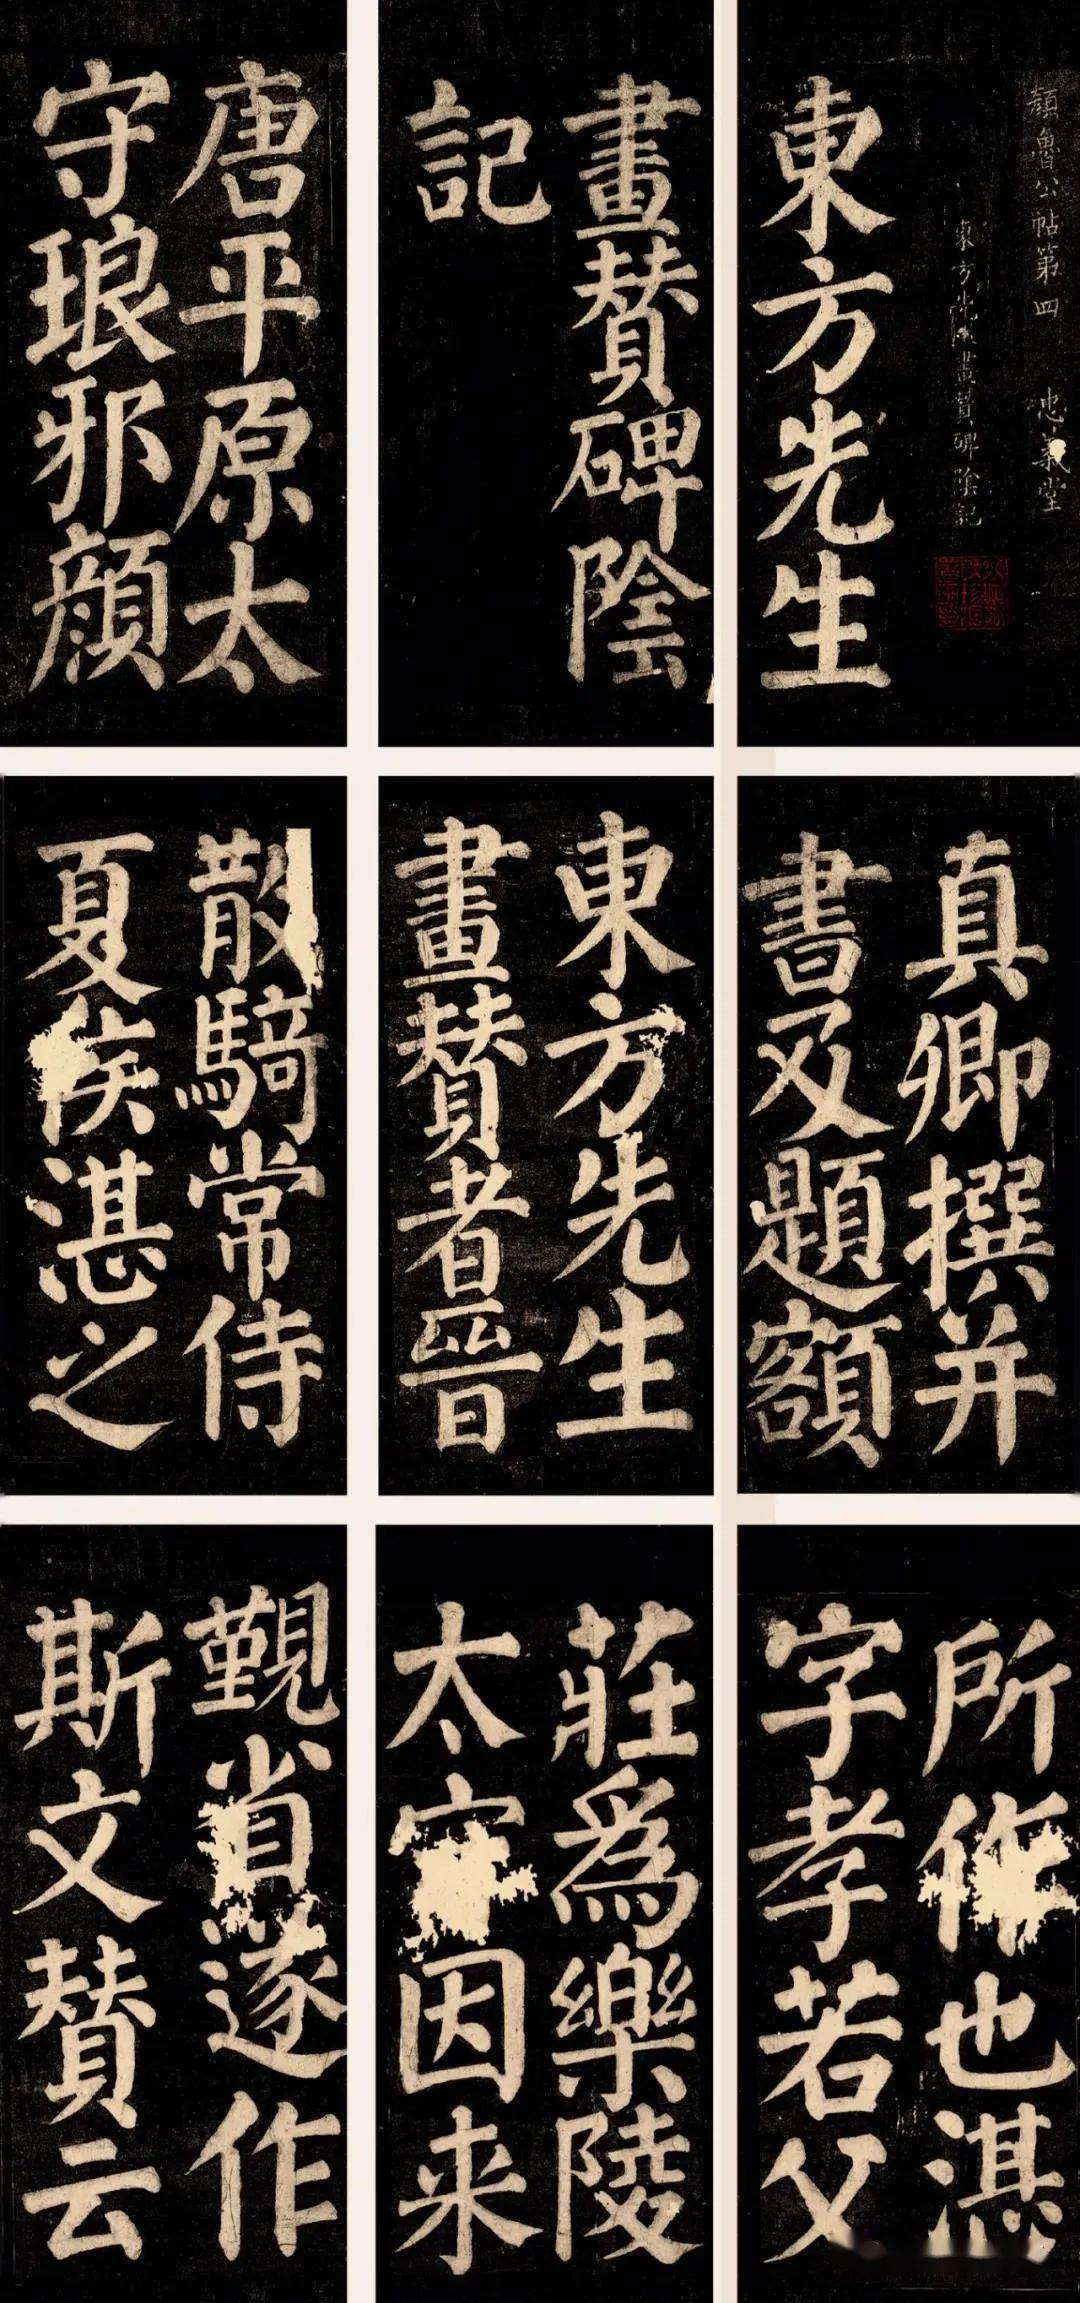 顏魯公帖第四 忠義堂
東方先生畫贊碑陰記
東方先生
畫贊碑陰
記
唐平原太
守琅邪顏
真卿撰并
書及題額
東方先生
畫贊者晉
散騎常侍
夏侯湛之
所作也湛
字孝若父
莊為樂陵
太守因来
覲省遂作
斯文贊云